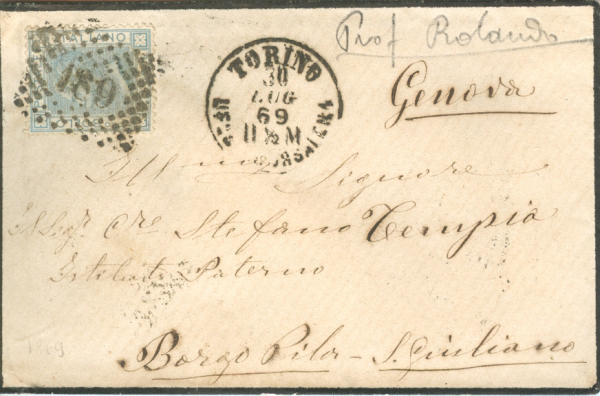 ITALIANO
189
TORINO
30
LUG
69
11 ½ M
Prof Rolando
Genova
Ill.mo Signore
Il Sigr. Cre Stefano Tempia
Paterno
Borgo Pila - S. Giuliano
189